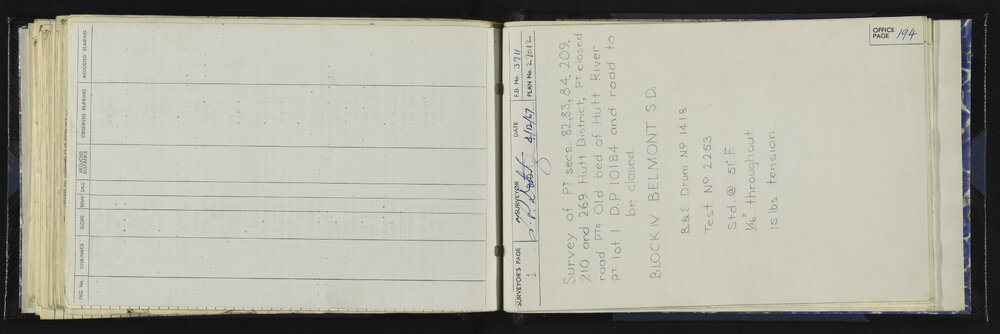 PEG No.
CHAINAGE
SLOPE
TEMP
SAG
REDUCED DISTANCE
OBSERVED BEARING
ADJUSTED BEARING
SURVEYOR'S PAGE
1
SURVEYOR
DATE
4/12/67
F.B. No. 3711
PLAN No. 27012
OFFICE PAGE 194
Survey of PT secs. 82, 83, 84, 209,
210 and 269 Hutt District, PT closed
road, PTs Old bed of Hutt River
PT lot 1 D.P 10184 and road to
be closed.
BLOCK IV BELMONT S.D.
B.&S Drum Nº 1418
Test Nº 2253
Std. @ 51° F
1/16" throughout
15 lbs. tension.